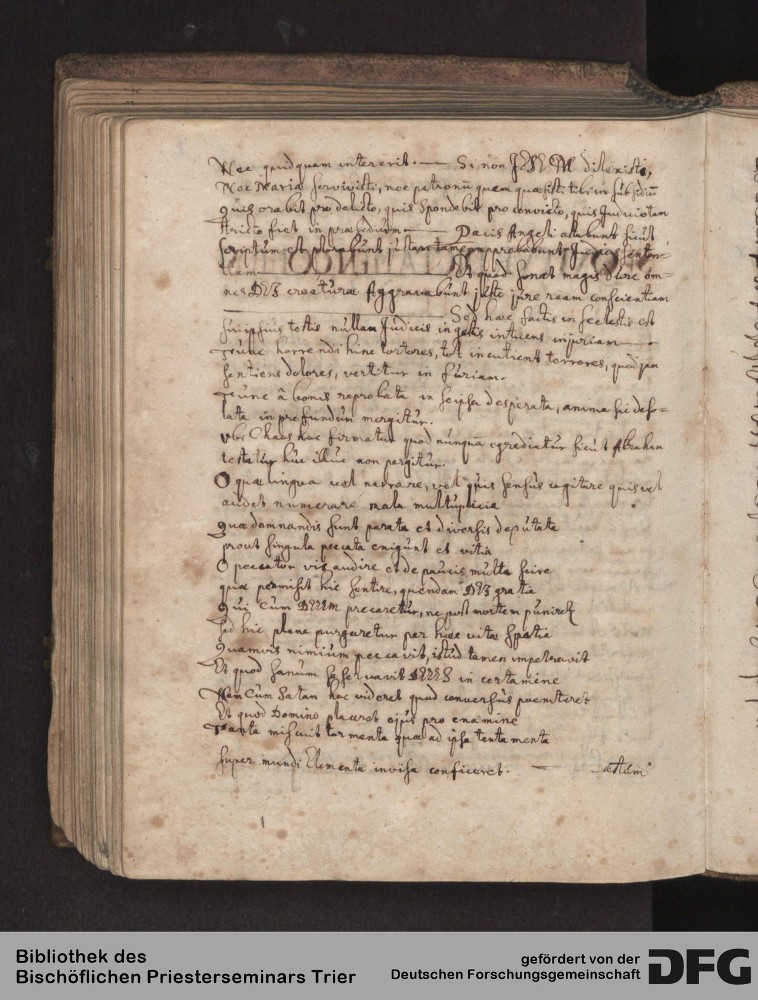 Nec quidquam intererit. — Si non JESUM dilexisti,
Nec Mariæ servivisti, nec patronũ quem quæsisti tibi in subsidiũ
Quis orabit pro delicto, quis spondebit pro convicto, quis Judici tam
stricto fiet in præsidium — Pacis Angeli astabunt sicut
scriptum est plorabunt justam tamen approbabunt Judicis senten-
tiam — Et quod sonat magis dure om=
nes DEI creaturæ Aggravabunt juste jure ream conscientiam
— Sed hæc factis in scelestis est
sui ipsius testis nullam Judicis in gestis intuens injuriam —
Tunc horrendi hinc tortores, tot incutient terrores, quod jam
sentiens dolores, vertitur in furiam.
Tunc â bonis reprobata in seipsa desperata, anima sic deso-
lata in profundum mergitur.
Ubi Chaos hoc firmatur quod nunquã egrediatur sicut Abraham
testatur huc illuc non pergitur.
O quæ lingua vel narrare, vel quis sensus cogitare quis vel
audet numerare mala multiplicia
Quæ damnandis sunt parata et diversis deputata
prout singula peccata exigunt et vitia
O peccator vis audire et de paucis multa scire
quæ permisit hic sentire, quendam DEI gratia
Qui cum DEUM precaretur, ne post mortem puniret
sed hic plene purgaretur per hæc vitæ spatia
Quamvis nimium peccavit, istud tamen impetravit
Et quod sanum se servavit DEUS in certamine
Nam Cum Satan hoc videret quod conversus poeniteret
Et quod Domino placeret ejus pro examine
Tanta miscuit tormenta quæ ad ipsa tentamenta
super mundi Elementa invisa conficeret. — æstum
Bibliothek des
Bischöflichen Priesterseminars Trier
gefördert von der
Deutschen Forschungsgemeinschaft
DFG